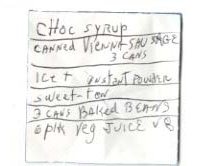 CHOC SYRUP
CANNED VIENNA SAUSAGE
3 CANS
ICE + INSTANT POWDER
SWEET-TEN
3 CANS BAKED BEANS
6 pks Veg JUICE V8